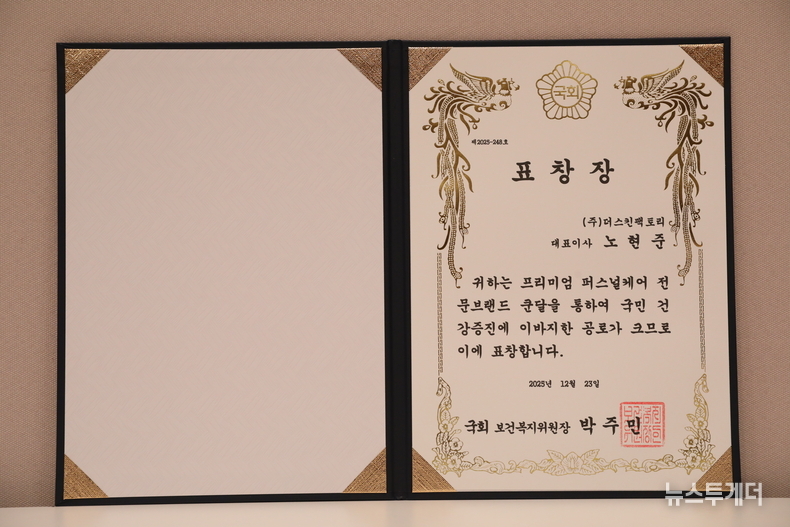 국회
제2025-248호
표창장
(주)더스킨팩토리
대표이사 노현준
귀하는 프리미엄 퍼스널케어 전
문브랜드 쿤달을 통하여 국민 건
강증진에 이바지한 공로가 크므로
이에 표창합니다.
2025년 12월 23일
국회 보건복지위원장 박주민
뉴스투게더